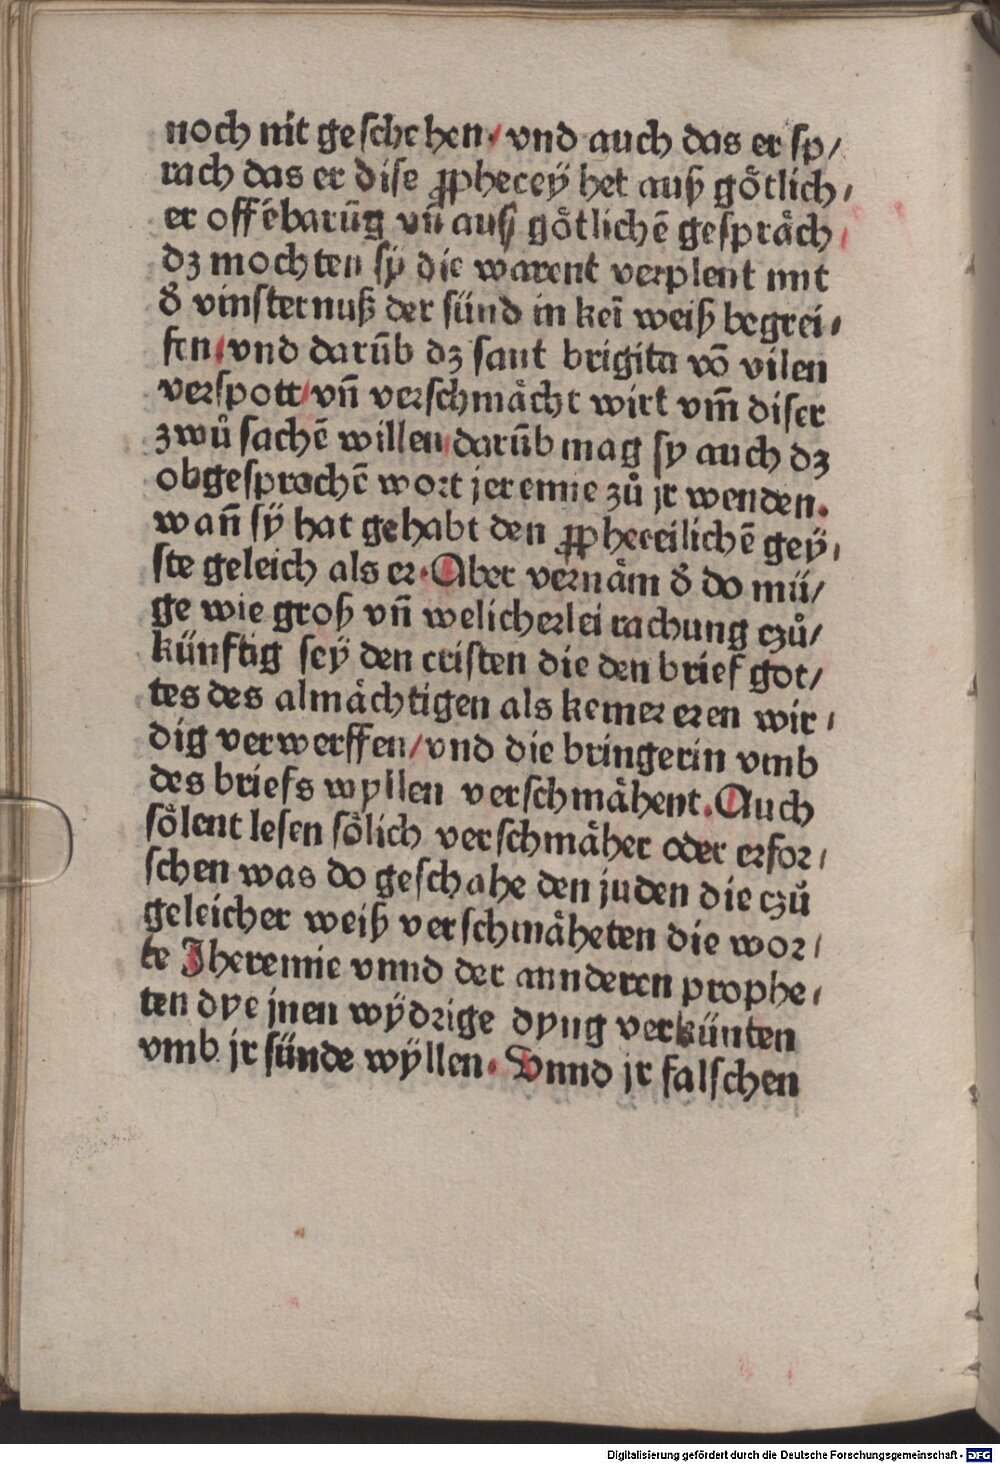 noch nit geschehen./ vnd auch das er sp/
rach das er dise ꝓphecey̋ het auß goͤtlich/
er offēbarūg vn̄ auß goͤtlichē gespraͤch/
dʒ mochten sy̋ die warent verplent mit
d̕ vinsternuß der sünd in kei̅ weiß begrei/
fen/ vnd darūb dʒ sant brigita vō vilen
verspott/ vn̄ verschmaͤcht wirt vm̄ diser
zwů sachē willen/ darūb mag sy auch dʒ
obgesprochē wort jeremie zů jr wenden.
wan̄ sy̋ hat gehabt den ꝓpheceilichē gey̋/
ste geleich als er. Aber vernaͤm d̕ do mü/
ge wie groß vn̄ welicherlei rachung czů/
künftig sey̋ den cristen die den brief got/
tes des almaͤchtigen als kemer eren wir/
dig verwerffen/ vnd die bringerin vmb
des briefs wyllen verschmaͤhent. Auch
soͤlent lesen soͤlich verschmaͤher oder erfor/
schen was do geschahe den juden die czů
geleicher weiß verschmaͤheten die wor/
te Jheremie vnnd der annderen prophe/
ten dye jnen wy̋drige dyng verkünten
vmb jr sünde wy̋llen. Vnnd jr falschen
Digitalisierung gefördert durch die Deutsche Forschungsgemeinschaft - DFG